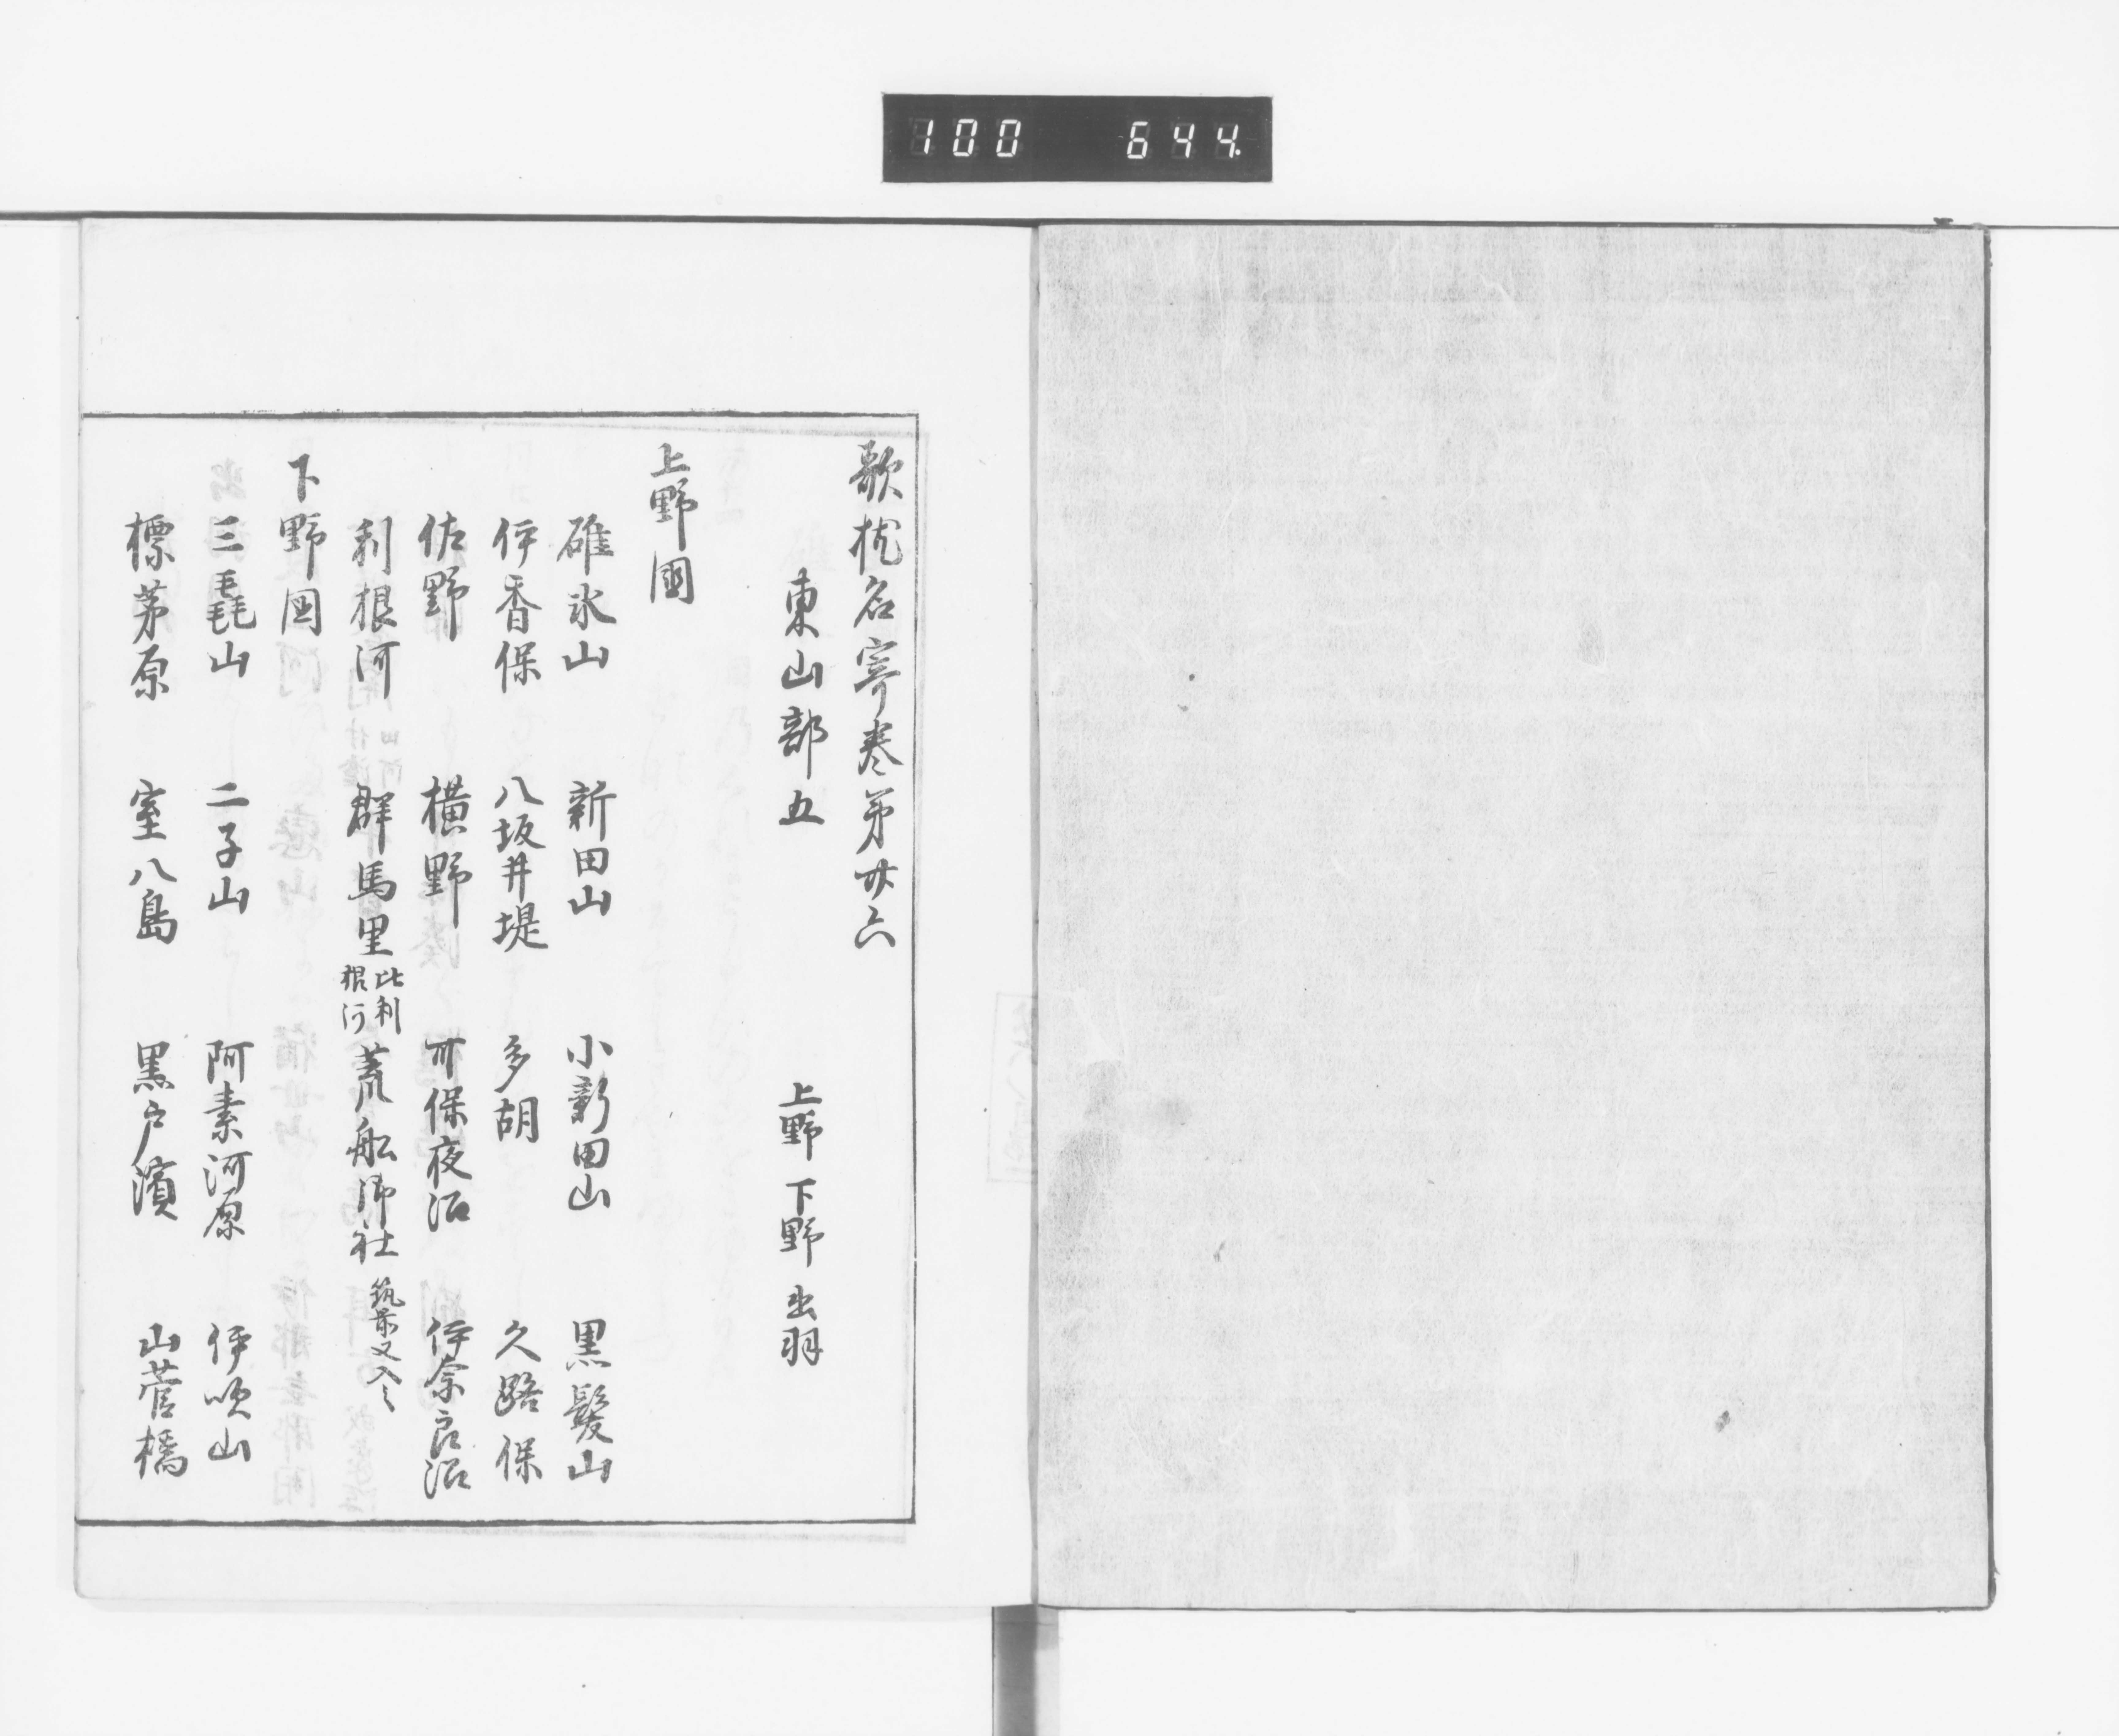 100 644.
歌枕名寄巻第廿六
東山部五 上野 下野 出羽
上野國
碓氷山 新田山 小新田山 黒髪山
伊香保 八坂井堤 多胡 久路保
佐野 横野 可保夜沼 伊奈良沼
利根河 群馬里 此利根河 荒船御社 筑前又入之
下野国
三毳山 二子山 阿素河原 伊吹山
標茅原 室八島 黒戸濱 山菅橋